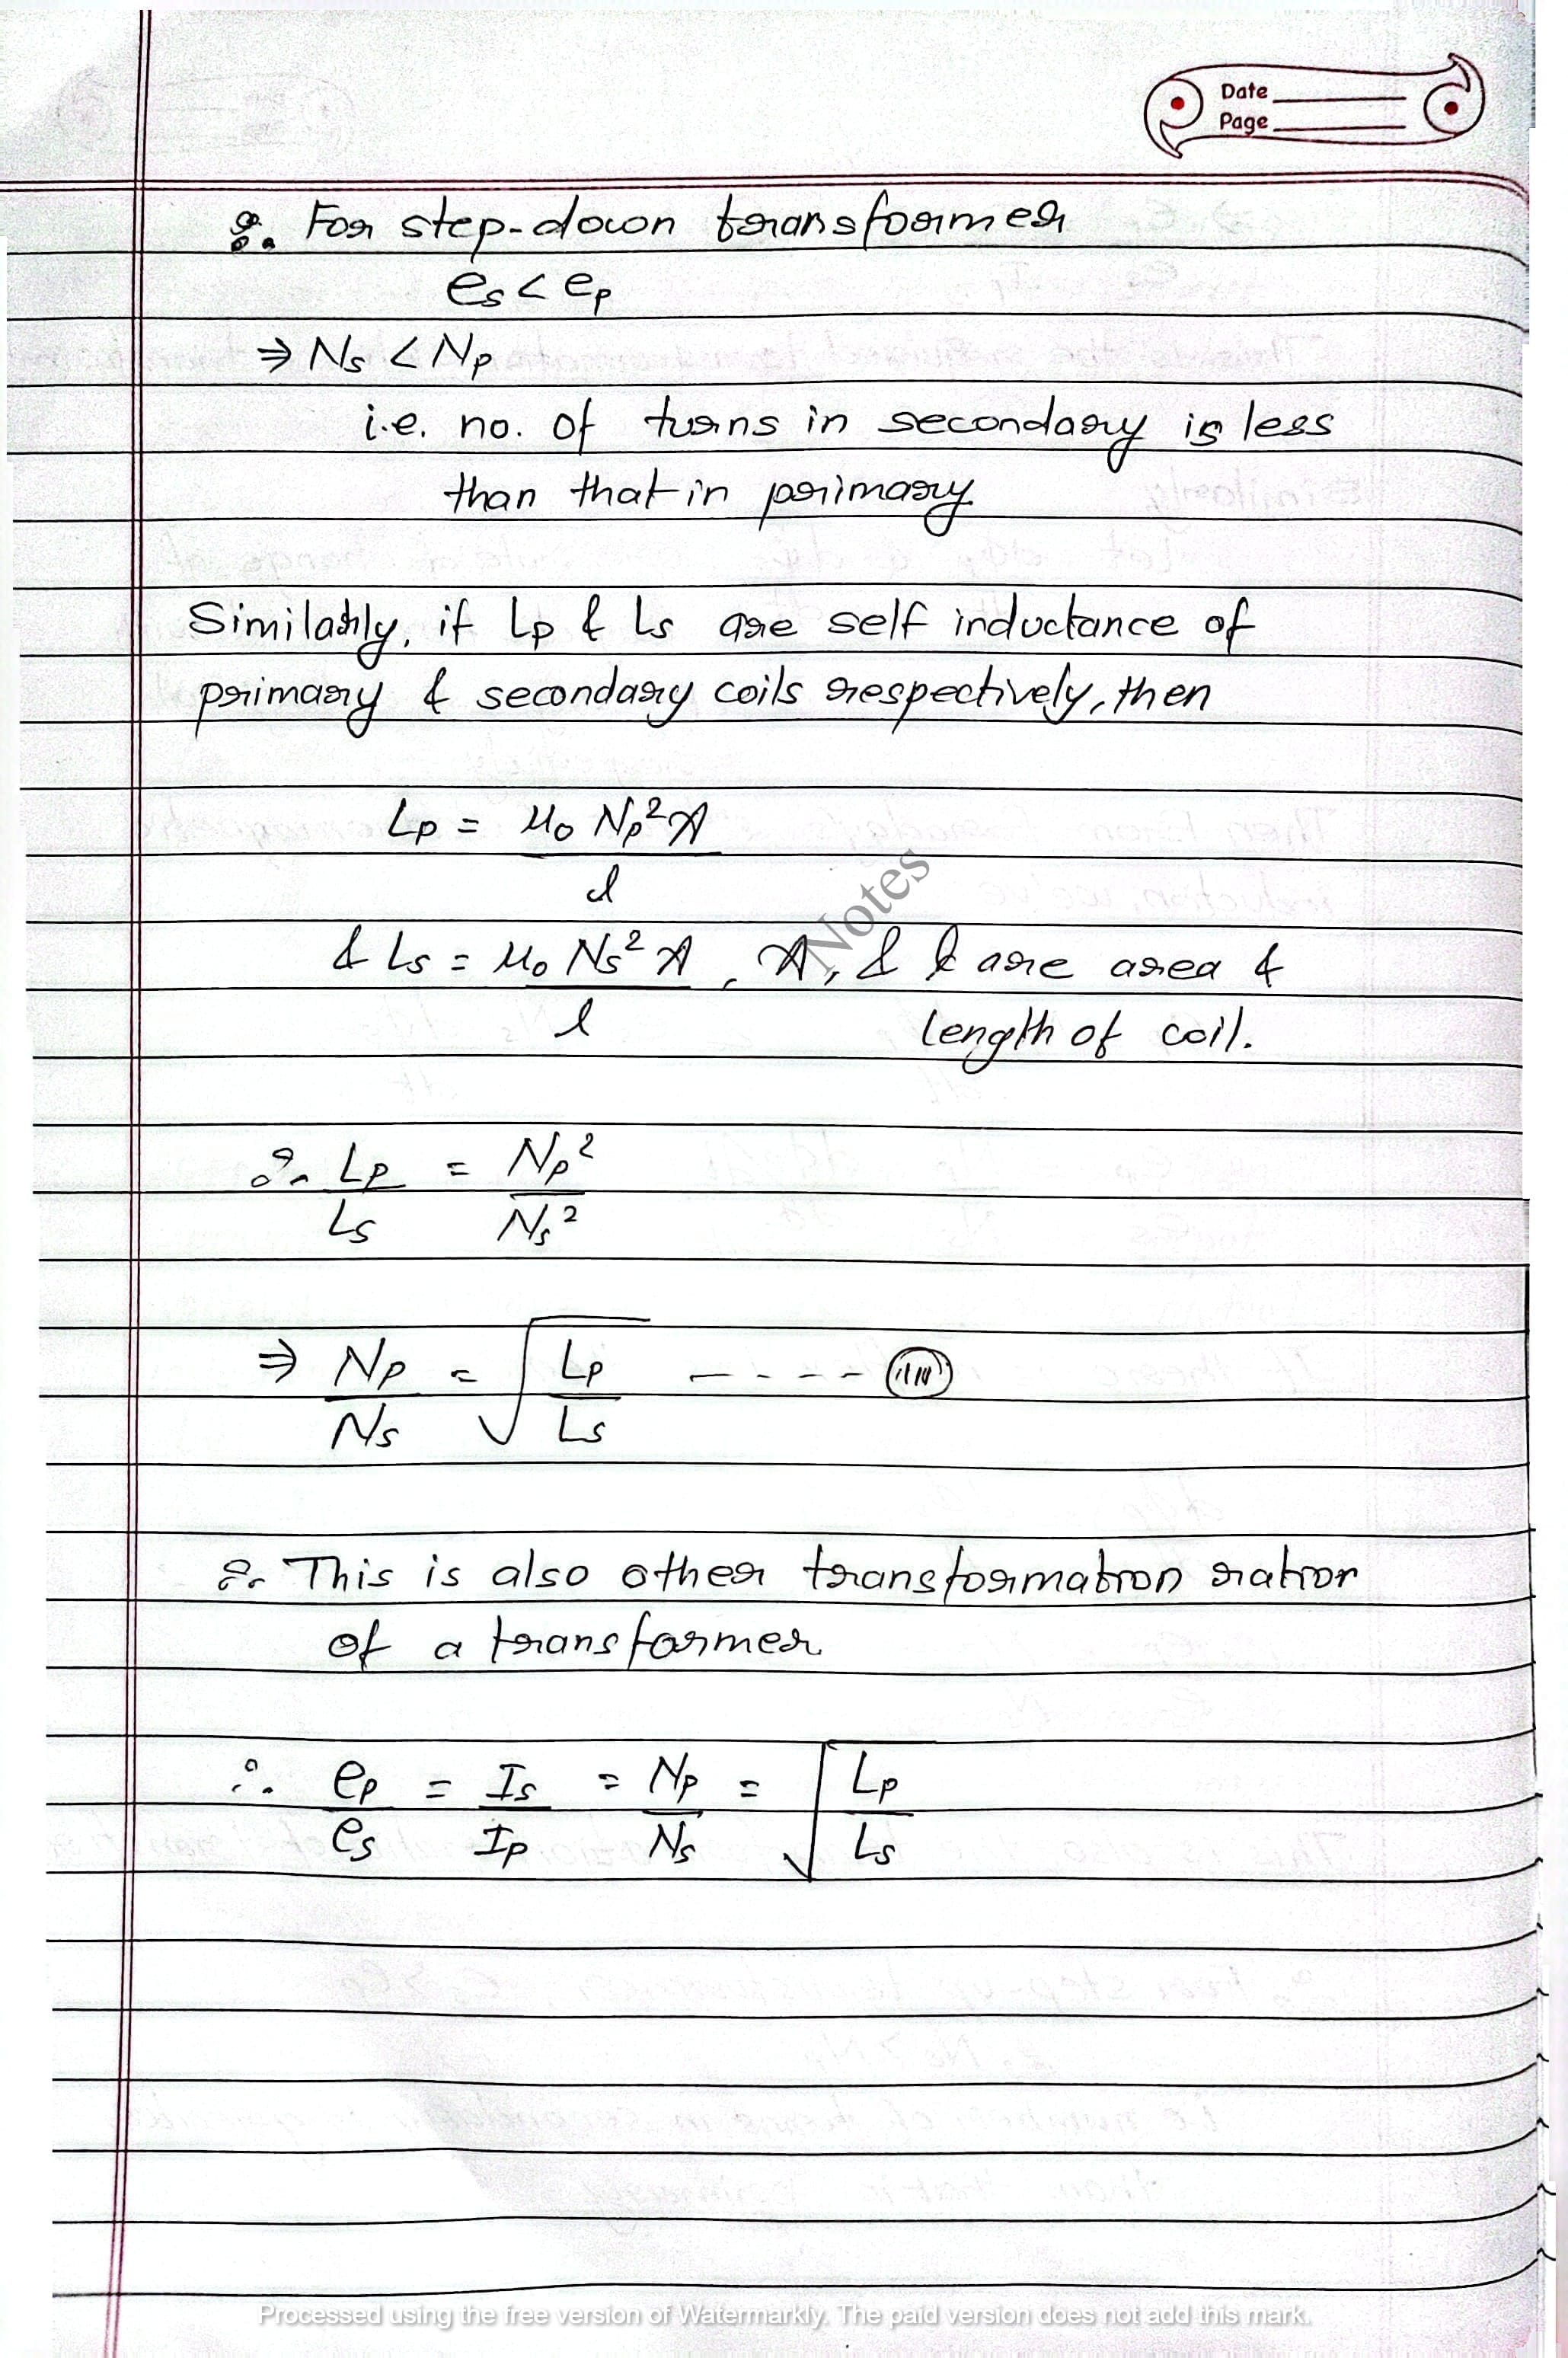 Date
Page
∴ For step-down transformer
es < ep
⇒ Ns < Np
i.e. no. of turns in secondary is less
than that in primary
Similarly, if Lp & Ls are self inductance of
primary & secondary coils respectively, then
Lp = μ₀ Np² A
l
& Ls = μ₀ Ns² A , A, & l are area &
l
length of coil.
Notes
∴ Lp = Np²
Ls Ns²
⇒ Np = √ Lp ----- (iii)
Ns Ls
∴ This is also other transformation ratior
of a transformer
∴ ep = Is = Np = √ Lp
es Ip Ns Ls
Processed using the free version of Watermarkly. The paid version does not add this mark.